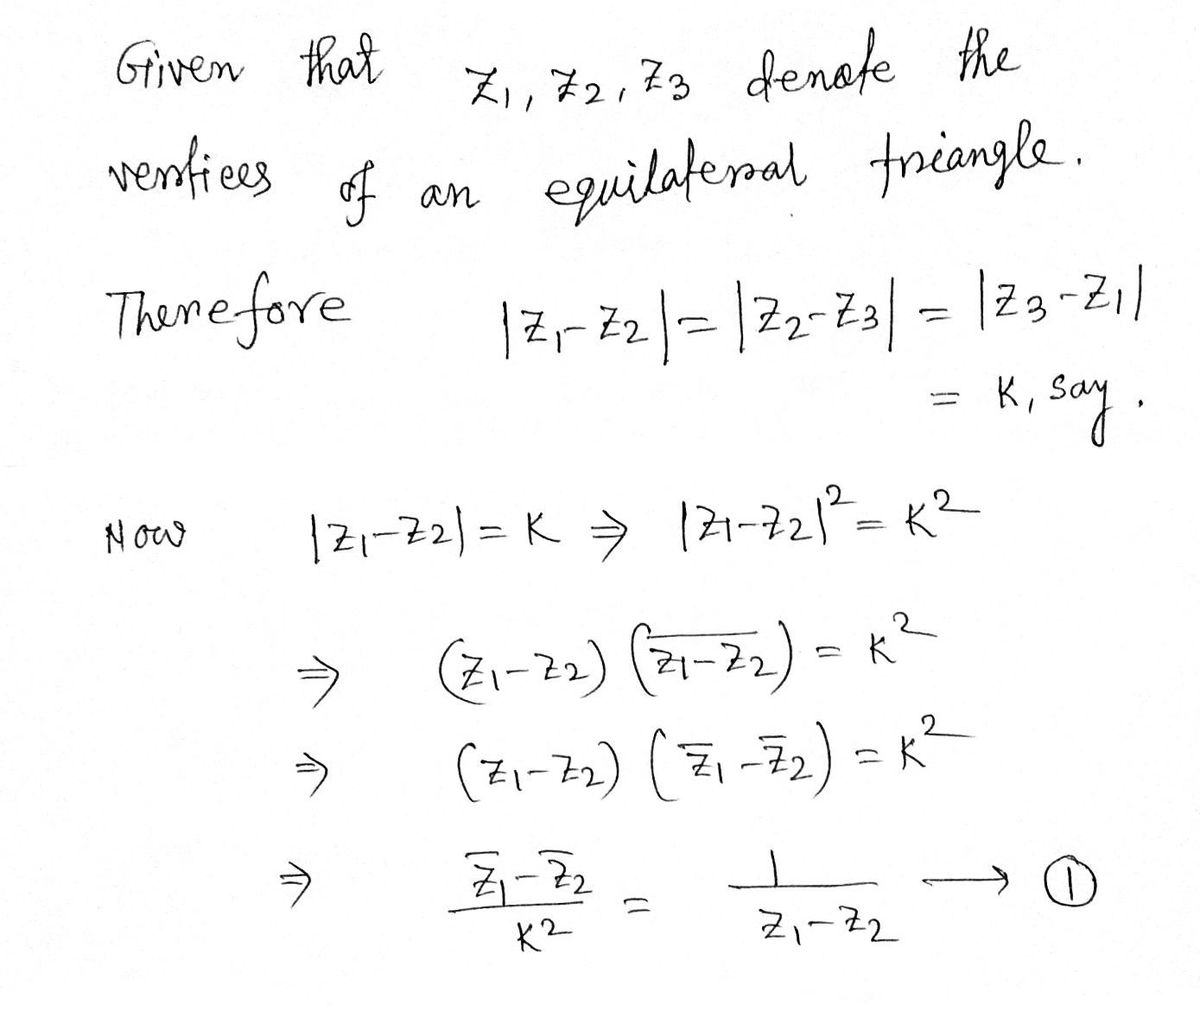 Given that z₁, z₂, z₃ denote the
vertices of an equilateral triangle.
Therefore |z₁-z₂| = |z₂-z₃| = |z₃-z₁|
= K, say.
Now |z₁-z₂| = K ⇒ |z₁-z₂|² = K²
⇒ (z₁-z₂) (z̅₁̅-̅z̅₂̅) = K²
⇒ (z₁-z₂) (z̅₁-z̅₂) = K²
⇒ (z̅₁-z̅₂)/K² = 1/(z₁-z₂) → ①